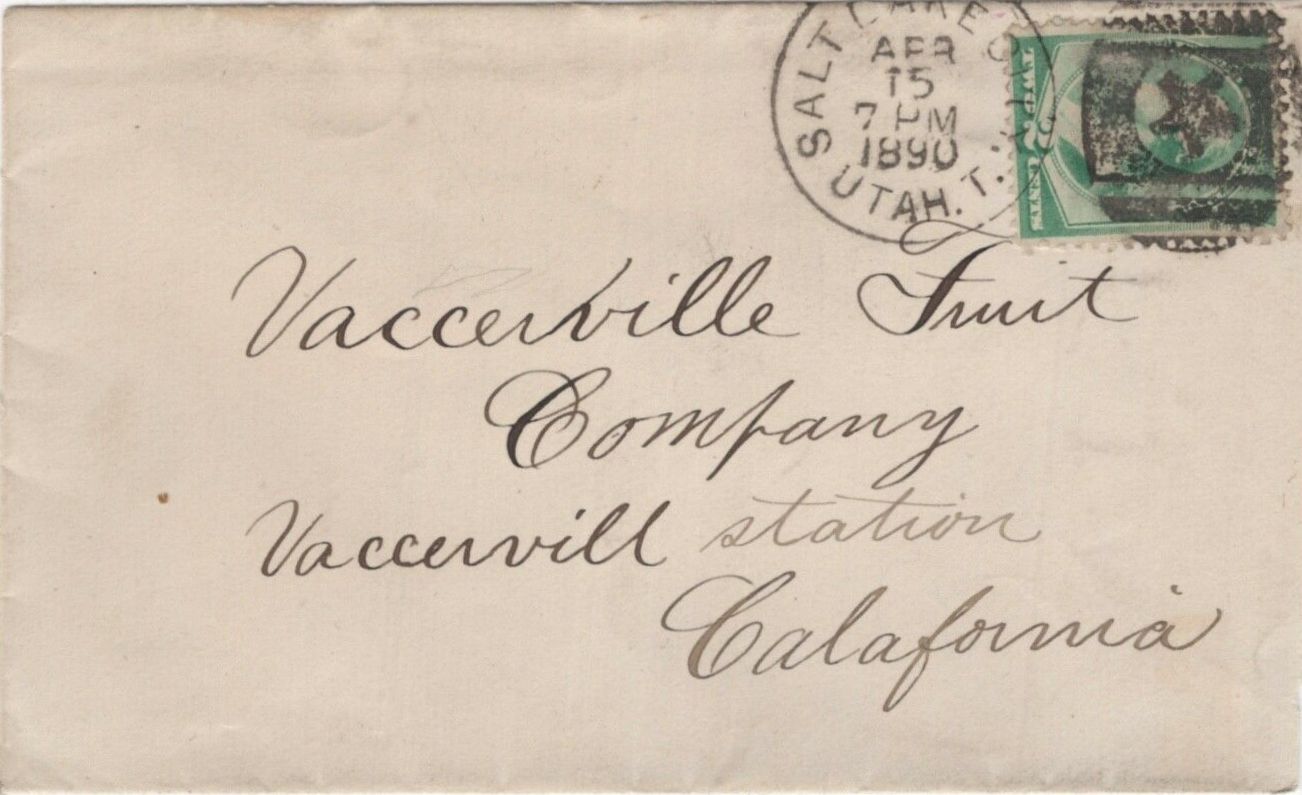 SALT LAKE CITY
APR
15
7 PM
1890
UTAH. T.
Vaccerville Fruit
Company
Vaccervill station
Calafornia